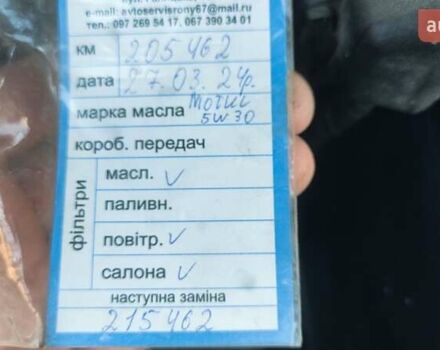 e-mail: avtoservisrony67@mail.ru
тел.: 097 269 54 17, 067 390 34 01
км 205462
дата 27.03.24р.
марка масла Мотил
5W30
короб. передач
фільтри
масл. V
паливн.
повітр. V
салона V
наступна заміна
215462